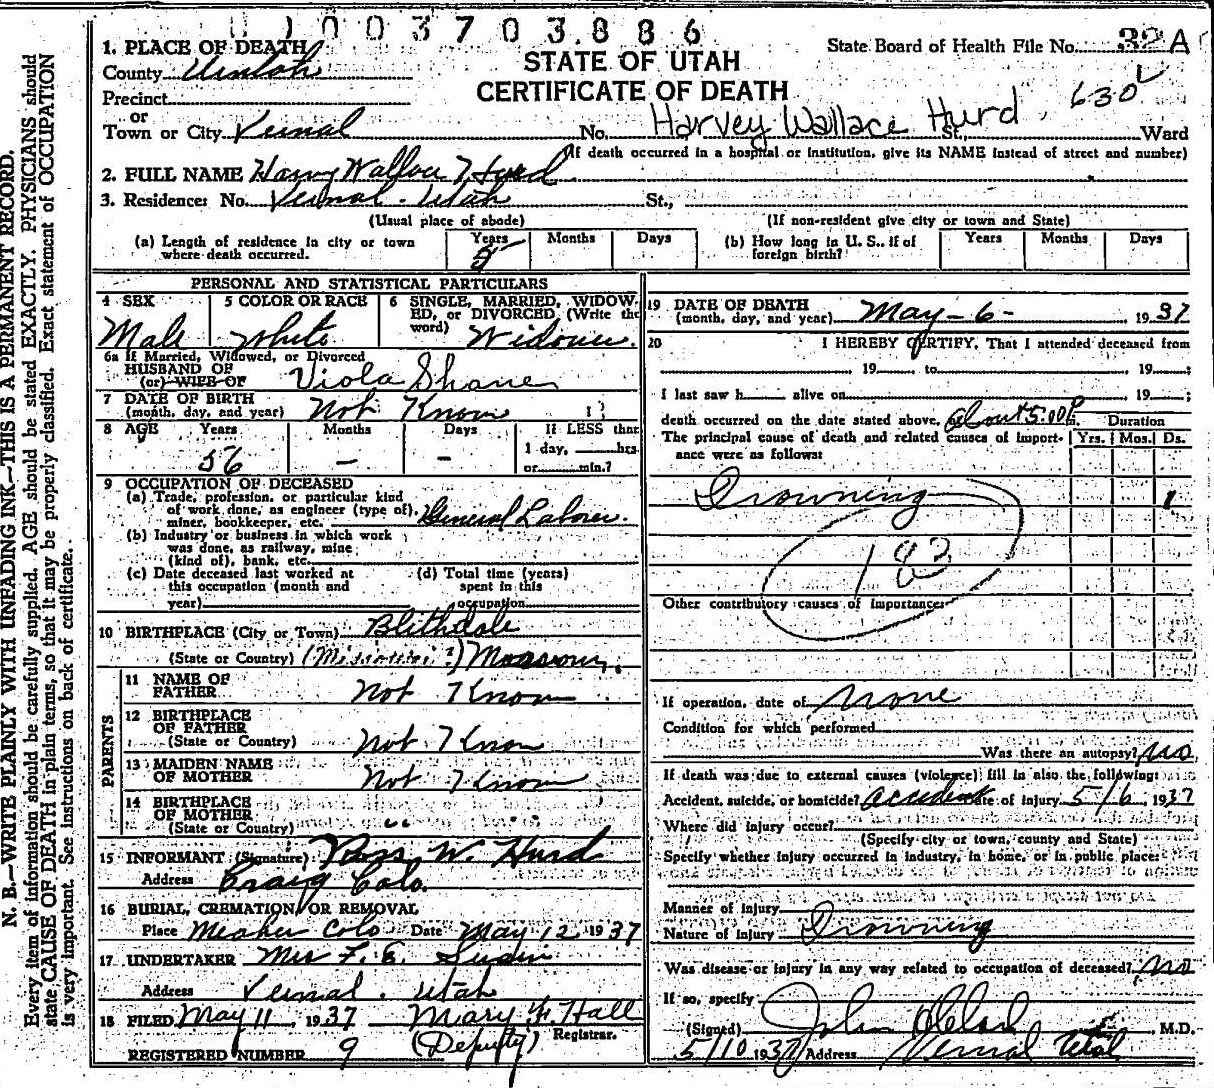 N. B.—WRITE PLAINLY WITH UNFADING INK—THIS IS A PERMANENT RECORD.
Every item of information should be carefully supplied. AGE should be stated EXACTLY. PHYSICIANS should
state CAUSE OF DEATH in plain terms, so that it may be properly classified. Exact statement of OCCUPATION
is very important. See instructions on back of certificate.
003703886
1. PLACE OF DEATH
County Uintah
STATE OF UTAH
CERTIFICATE OF DEATH
State Board of Health File No. 32A
Precinct
or
Town or City Vernal No. Harvey Wallace Hurd St., Ward
630
(If death occurred in a hospital or institution, give its NAME instead of street and number)
2. FULL NAME Harvy Wallace Hurd
3. Residence: No. Vernal - Utah St.,
(Usual place of abode) (If non-resident give city or town and State)
(a) Length of residence in city or town where death occurred. Years 5 Months Days
(b) How long in U. S., if of foreign birth? Years Months Days
PERSONAL AND STATISTICAL PARTICULARS
4 SEX Male
5 COLOR OR RACE White
6 SINGLE, MARRIED, WIDOWED, or DIVORCED, (Write the word) Widower.
6a If Married, Widowed, or Divorced
HUSBAND OF
(or) WIFE OF Viola Shaner
7 DATE OF BIRTH
(month, day, and year) Not Know
8 AGE Years 56 Months - Days -
If LESS than
1 day, hrs.
or min.?
9 OCCUPATION OF DECEASED
(a) Trade, profession, or particular kind
of work done, as engineer (type of),
miner, bookkeeper, etc. General Laborer.
(b) Industry or business in which work
was done, as railway, mine
(kind of), bank, etc.
(c) Date deceased last worked at
this occupation (month and
year)
(d) Total time (years)
spent in this
occupation
10 BIRTHPLACE (City or Town) Blithdale
(State or Country)
PARENTS
11 NAME OF
FATHER Not Know
12 BIRTHPLACE
OF FATHER
(State or Country) Not Know
13 MAIDEN NAME
OF MOTHER Not Know
14 BIRTHPLACE
OF MOTHER
(State or Country)
15 INFORMANT (Signature) Ross W. Hurd
Address Craig Colo.
16 BURIAL, CREMATION, OR REMOVAL
Place Meaker Colo Date May 12 1937
17 UNDERTAKER Mrs F. E.
Address Vernal. Utah
18 FILED May 11, 1937 Mary H. Hall
(Deputy) Registrar.
REGISTERED NUMBER 9
19 DATE OF DEATH
(month, day, and year) May - 6 - 1937
20 I HEREBY CERTIFY, That I attended deceased from
19 , to 19 ;
I last saw h alive on 19 ;
death occurred on the date stated above, about 5:00 P
The principal cause of death and related causes of importance were as follows:
Duration
Yrs. Mos. Ds.
Drowning 1
183
Other contributory causes of importance:
If operation, date of none
Condition for which performed
Was there an autopsy? no
If death was due to external causes (violence) fill in also the following:
Accident, suicide, or homicide? accident Date of injury 5/6, 1937
Where did injury occur?
(Specify city or town, county and State)
Specify whether injury occurred in industry, in home, or in public place:
Manner of injury
Nature of injury Drowning
Was disease or injury in any way related to occupation of deceased? no
If so, specify
(Signed) John M.D.
5/10 1937 Address Vernal Utah